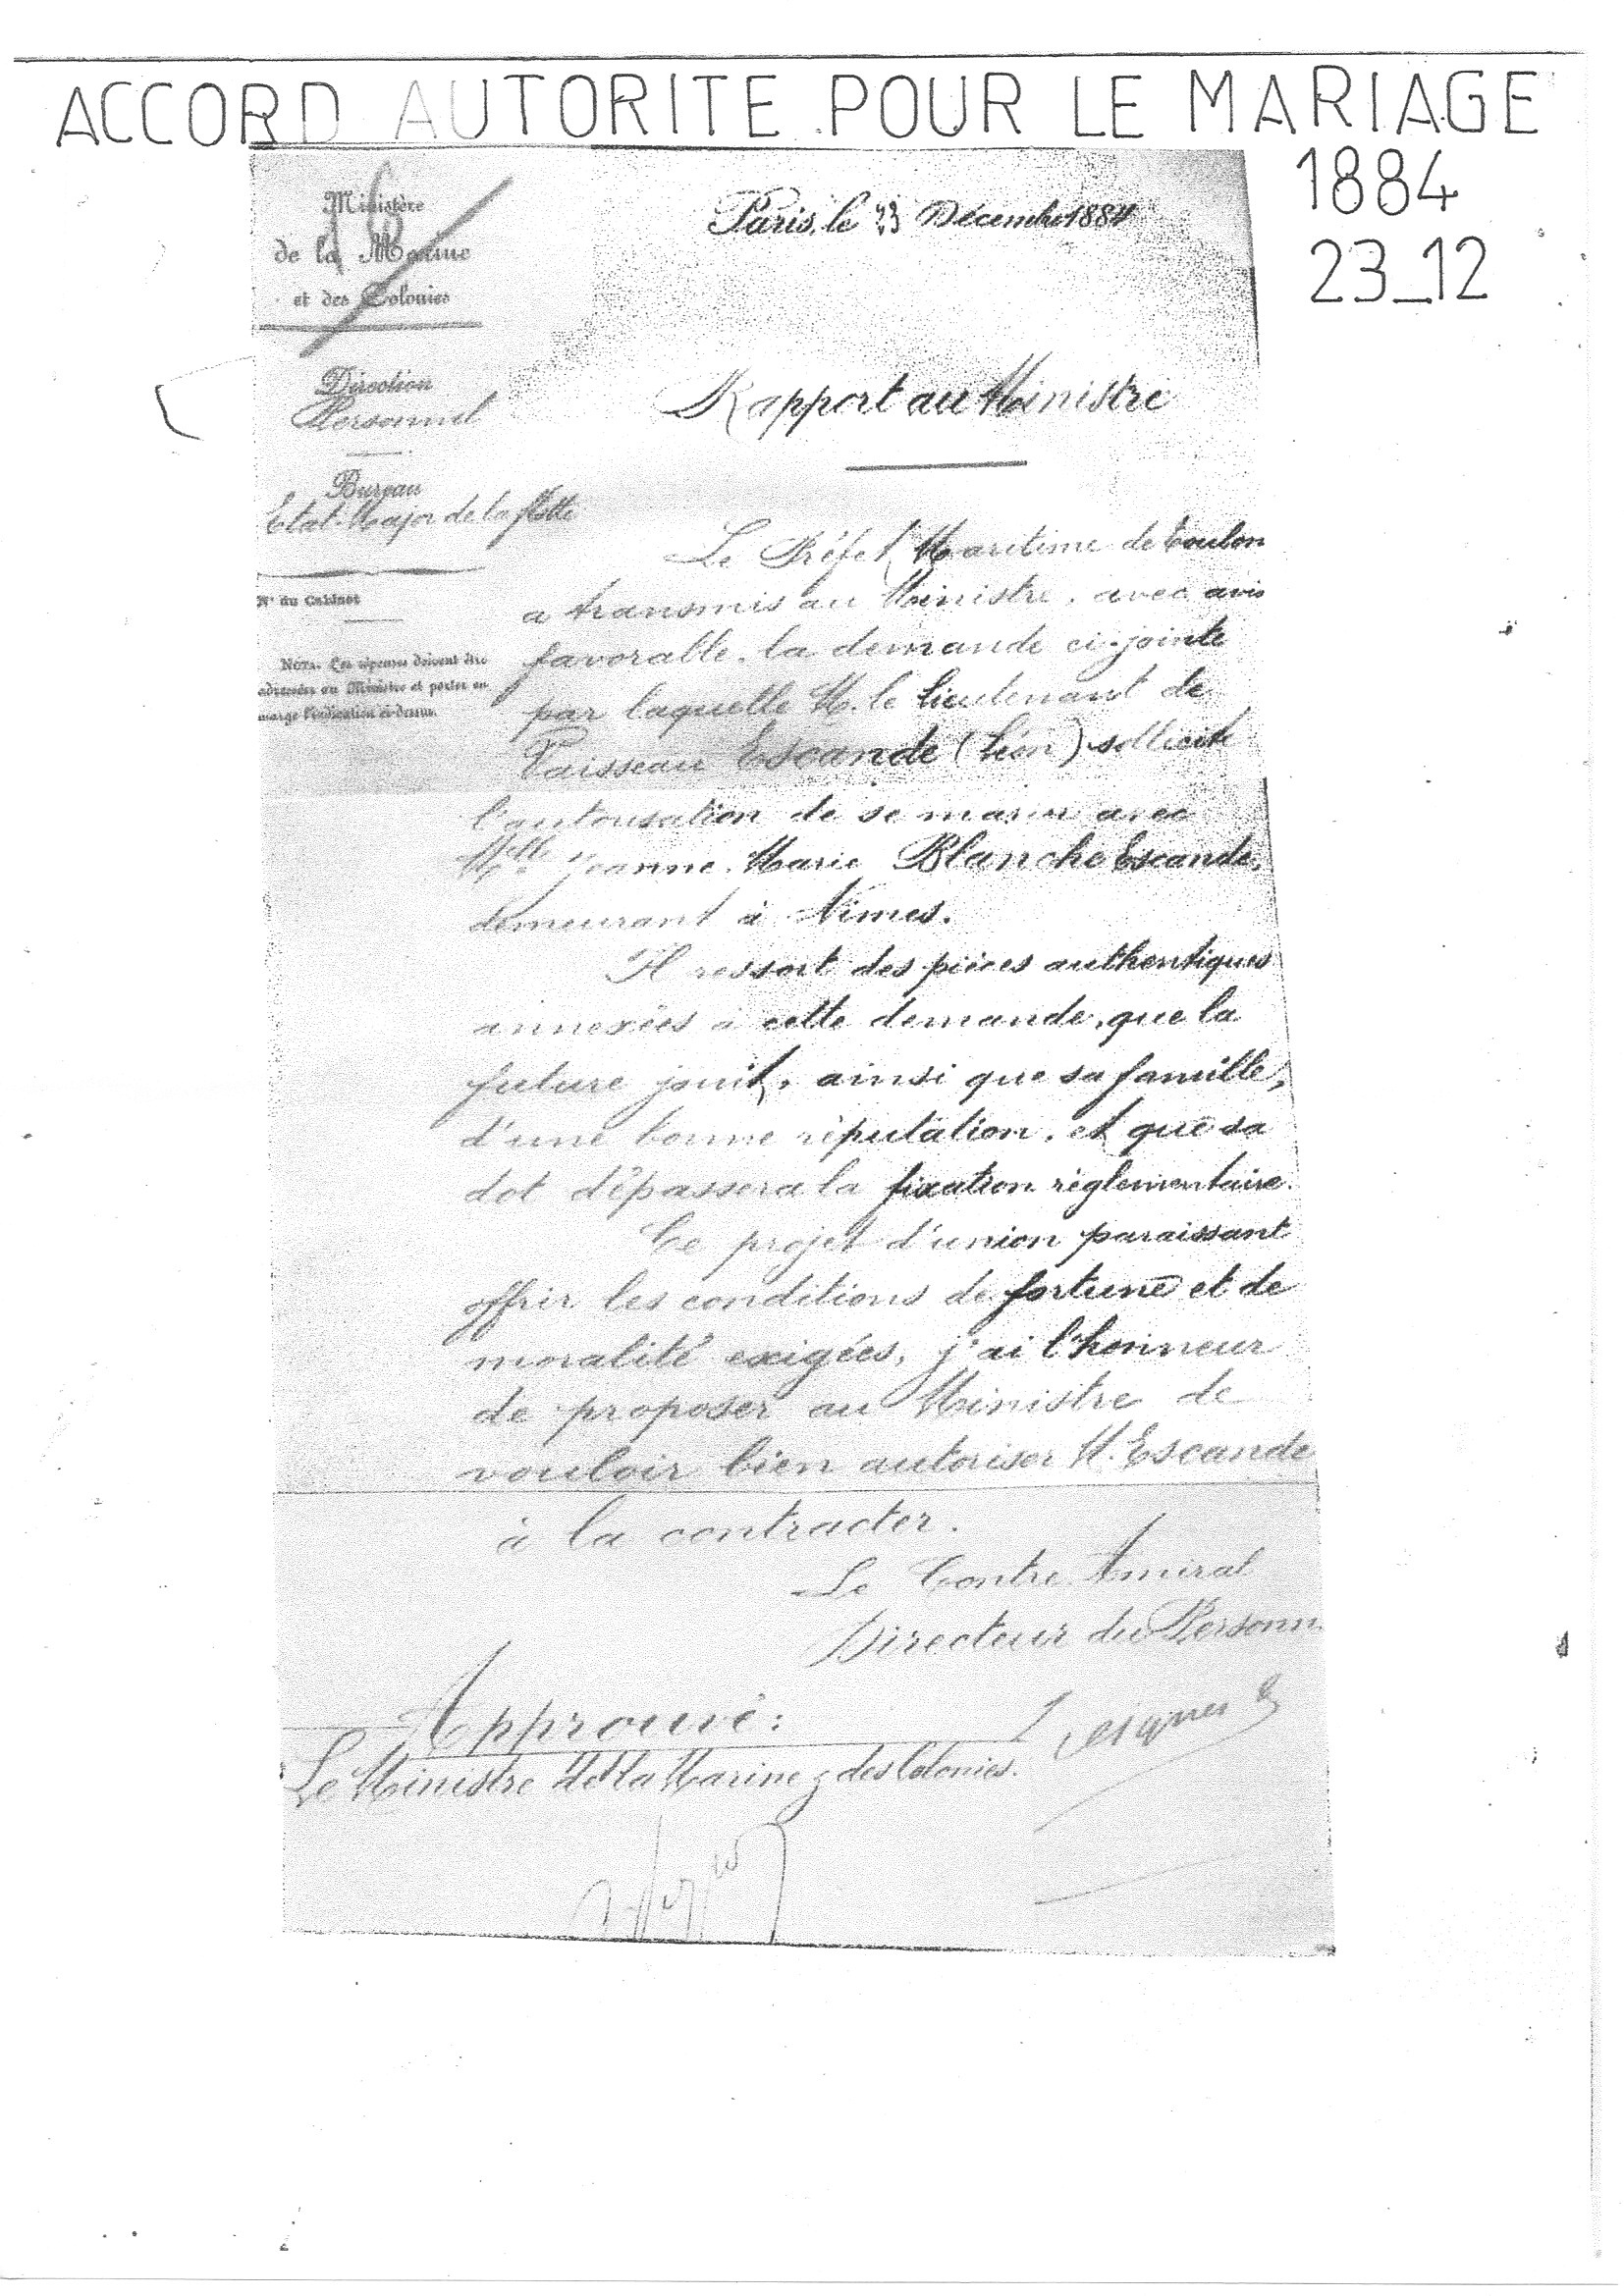 ACCORD AUTORITE POUR LE MARIAGE
1884
23_12
Ministère
de la Marine
et des Colonies
Paris, le 23 Décembre 1884
Direction
Personnel
Rapport au Ministre
Bureau
Etat-Major de la flotte
N° du Cabinet
NOTA. Les réponses doivent être
adressées au Ministre et porter en
marge l'indication ci-dessus.
Le Préfet Maritime de Toulon
a transmis au Ministre, avec avis
favorable, la demande ci-jointe
par laquelle M. le Lieutenant de
Vaisseau Escande (Léon) sollicite
l'autorisation de se marier avec
Melle Jeanne Marie Blanche Escande,
demeurant à Nimes.
Il ressort des pièces authentiques
annexées à cette demande, que la
future jouit, ainsi que sa famille,
d'une bonne réputation, et que sa
dot dépassera la fixation réglementaire.
Ce projet d'union paraissant
offrir les conditions de fortune et de
moralité exigées, j'ai l'honneur
de proposer au Ministre de
vouloir bien autoriser M. Escande
à la contracter.
Le Contre Amiral
Directeur du Personn
Approuvé:
Le Ministre de la Marine & des Colonies.